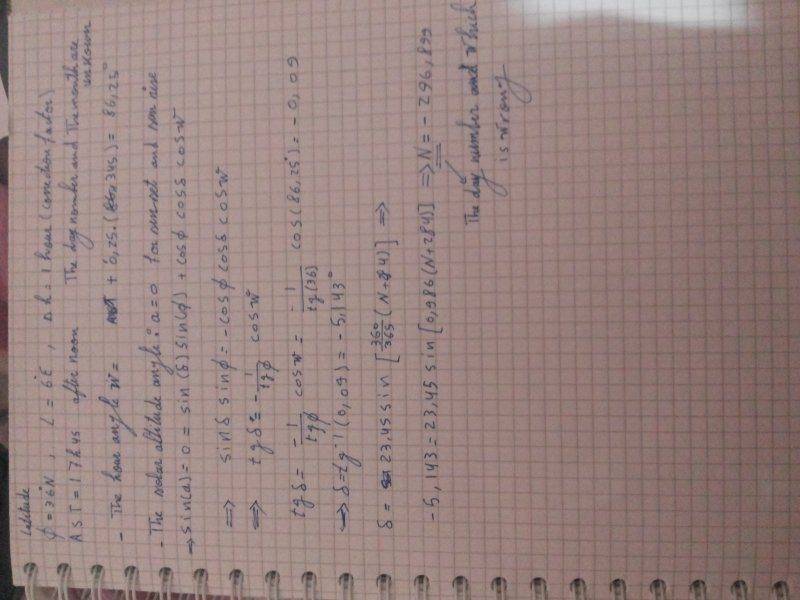 Latitude
ϕ = 36°N , L = 6°E , Δh = 1 hour (correction factor)
AST = 17h45 after noon The day number and The month are unknown
- The hour angle w = + 0,25.(345) = 86,25°
- The solar altitude angle : a=0 for sun-set and sun rise
→ sin(a) = 0 = sin(δ) sin(ϕ) + cosϕ cosδ cosw
⇒ sinδ sinϕ = -cosϕ cosδ cosw
⇒ tgδ = - 1/tgϕ cosw
tgδ = - 1/tgϕ cosw = - 1/tg(36) cos(86,25°) = -0,09
→ δ = tg⁻¹(0,09) = -5,143°
δ = 23,45 sin [360/365 (N+284)] ⇒
-5,143 = 23,45 sin [0,986(N+284)] ⇒ N = -296,899
The day number and which
is wrong